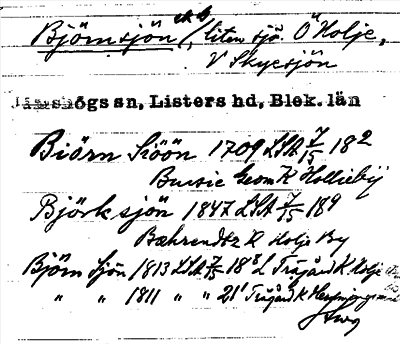 Björnsjön ek b, liten sjö. Ö Holje,
V Skyesjön
Jämshögs sn, Listers hd, Blek. län
Biörn Siöön 1709 LSA 7/15 18²
Bursie Geom K Holliebÿ
Björksjön 1847 LSA 7/15 18⁹
Bæhrendtz K Holje By
Björn Sjön 1813 LSA 7/15 18⁸ L Trägård K Holje
" " 1811 " " 21¹ Trägård K